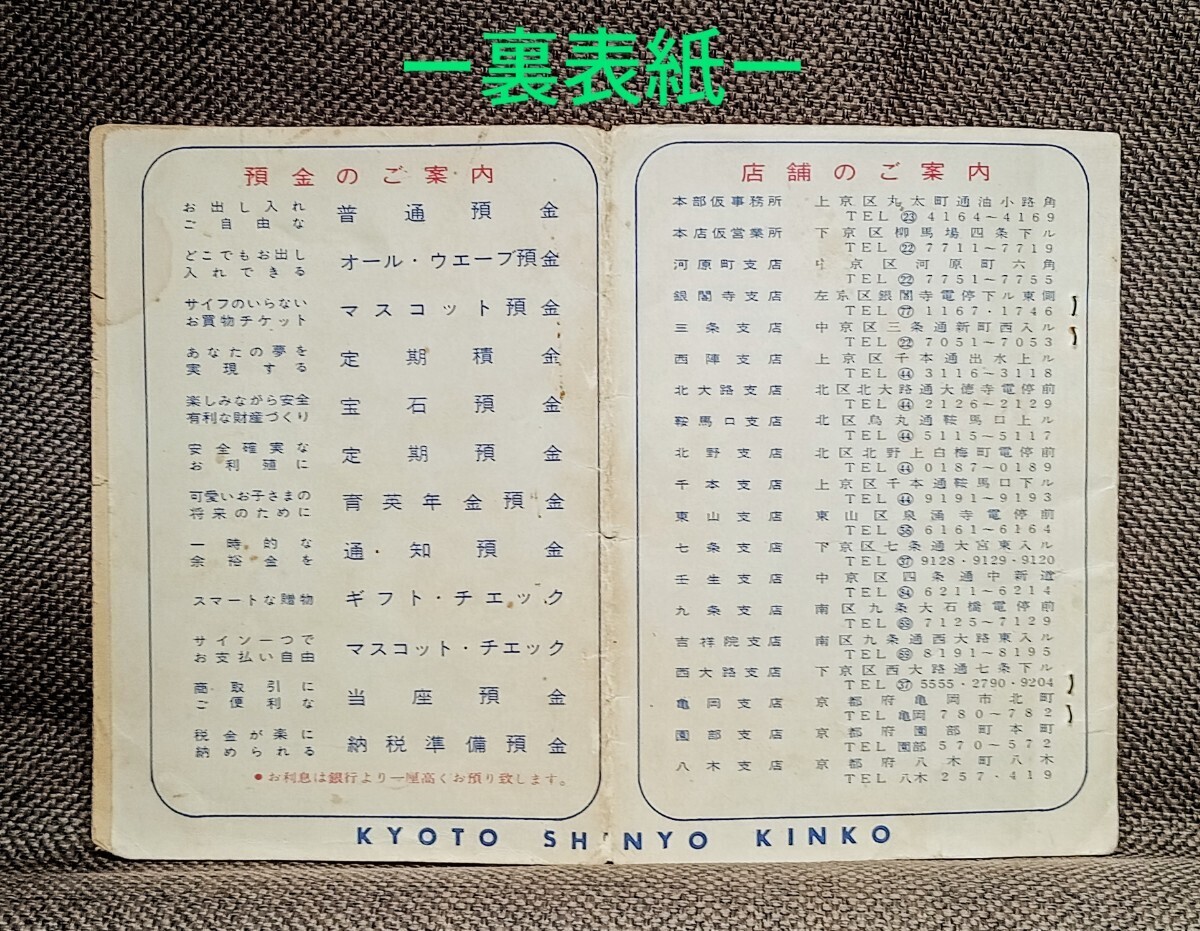 ー裏表紙ー
預金のご案内
お出し入れ
ご自由な
普通預金
どこでもお出し
入れできる
オール・ウエーブ預金
サイフのいらない
お買物チケット
マスコット預金
あなたの夢を
実現する
定期積金
楽しみながら安全
有利な財産づくり
宝石預金
安全確実な
お利殖に
定期預金
可愛いお子さまの
将来のために
育英年金預金
一時的な
余裕金を
通知預金
スマートな贈物
ギフト・チエック
サイン一つで
お支払い自由
マスコット・チエック
商取引に
ご便利な
当座預金
税金が楽に
納められる
納税準備預金
●お利息は銀行より一層高くお預り致します。
店舗のご案内
本部仮事務所 上京区丸太町通油小路角
TEL ㉓ 4164～4169
本店仮営業所 下京区柳馬場四条下ル
TEL ㉒ 7711～7719
河原町支店 中京区河原町六角
TEL ㉒ 7751～7755
銀閣寺支店 左京区銀閣寺電停下ル東側
TEL 77 1167・1746
三条支店 中京区三条通新町西入ル
TEL ㉒ 7051～7053
西陣支店 上京区千本通出水上ル
TEL ㊹ 3116～3118
北大路支店 北区北大路通大徳寺電停前
TEL ㊹ 2126～2129
鞍馬口支店 北区烏丸通鞍馬口上ル
TEL ㊹ 5115～5117
北野支店 北区北野上白梅町電停前
TEL ㊹ 0187～0189
千本支店 上京区千本通鞍馬口下ル
TEL ㊹ 9191～9193
東山支店 東山区泉涌寺電停前
TEL 56 6161～6164
七条支店 下京区七条通大宮東入ル
TEL ㊲ 9128・9129・9120
壬生支店 中京区四条通中新道
TEL 84 6211～6214
九条支店 南区九条大石橋電停前
TEL 7125～7129
吉祥院支店 南区九条通西大路東入ル
TEL 8191～8195
西大路支店 下京区西大路通七条下ル
TEL ㊲ 5555・2790・9204
亀岡支店 京都府亀岡市北町
TEL 亀岡 780～782
園部支店 京都府園部町本町
TEL 園部 570～572
八木支店 京都府八木町八木
TEL 八木 257・419
KYOTO SHINYO KINKO